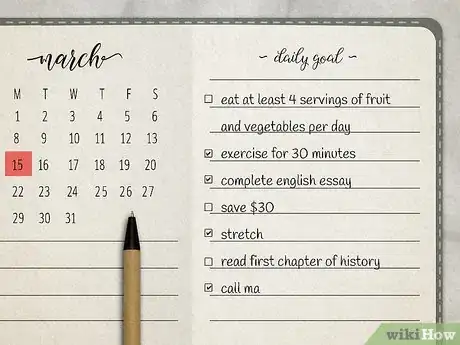 march
M T W T F S
1 2 3 4 5 6
8 9 10 11 12 13
15 16 17 18 19 20
22 23 24 25 26 27
29 30 31
~ daily goal ~
eat at least 4 servings of fruit
and vegetables per day
exercise for 30 minutes
complete english essay
save $30
stretch
read first chapter of history
call ma
wikiHow